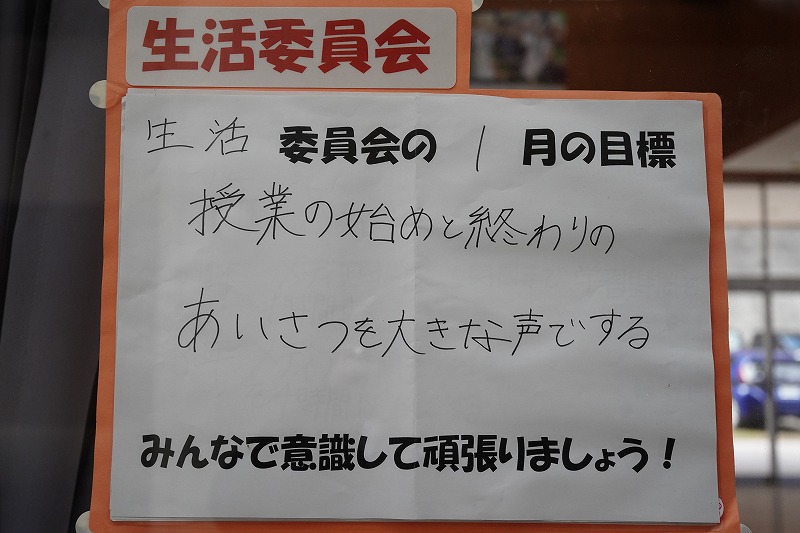 生活委員会
生活 委員会の 1 月の目標
授業の始めと終わりの
あいさつを大きな声でする
みんなで意識して頑張りましょう！